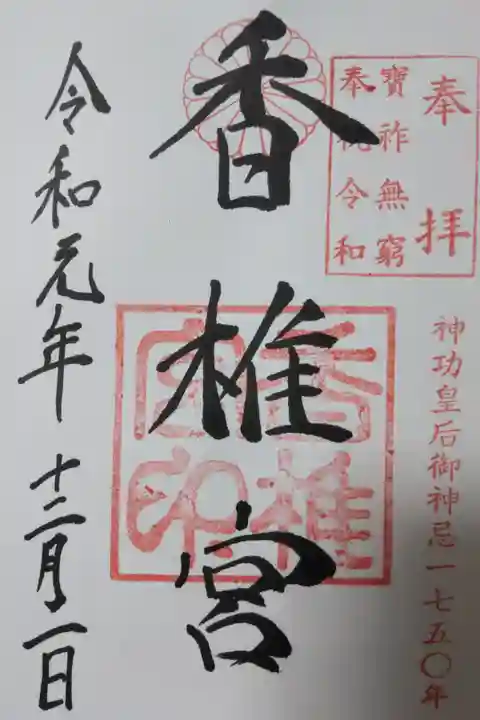 奉拝
寶祚無窮
奉祝令和
神功皇后御神忌一七五〇年
香椎宮
香椎宮印
令和元年十二月二日